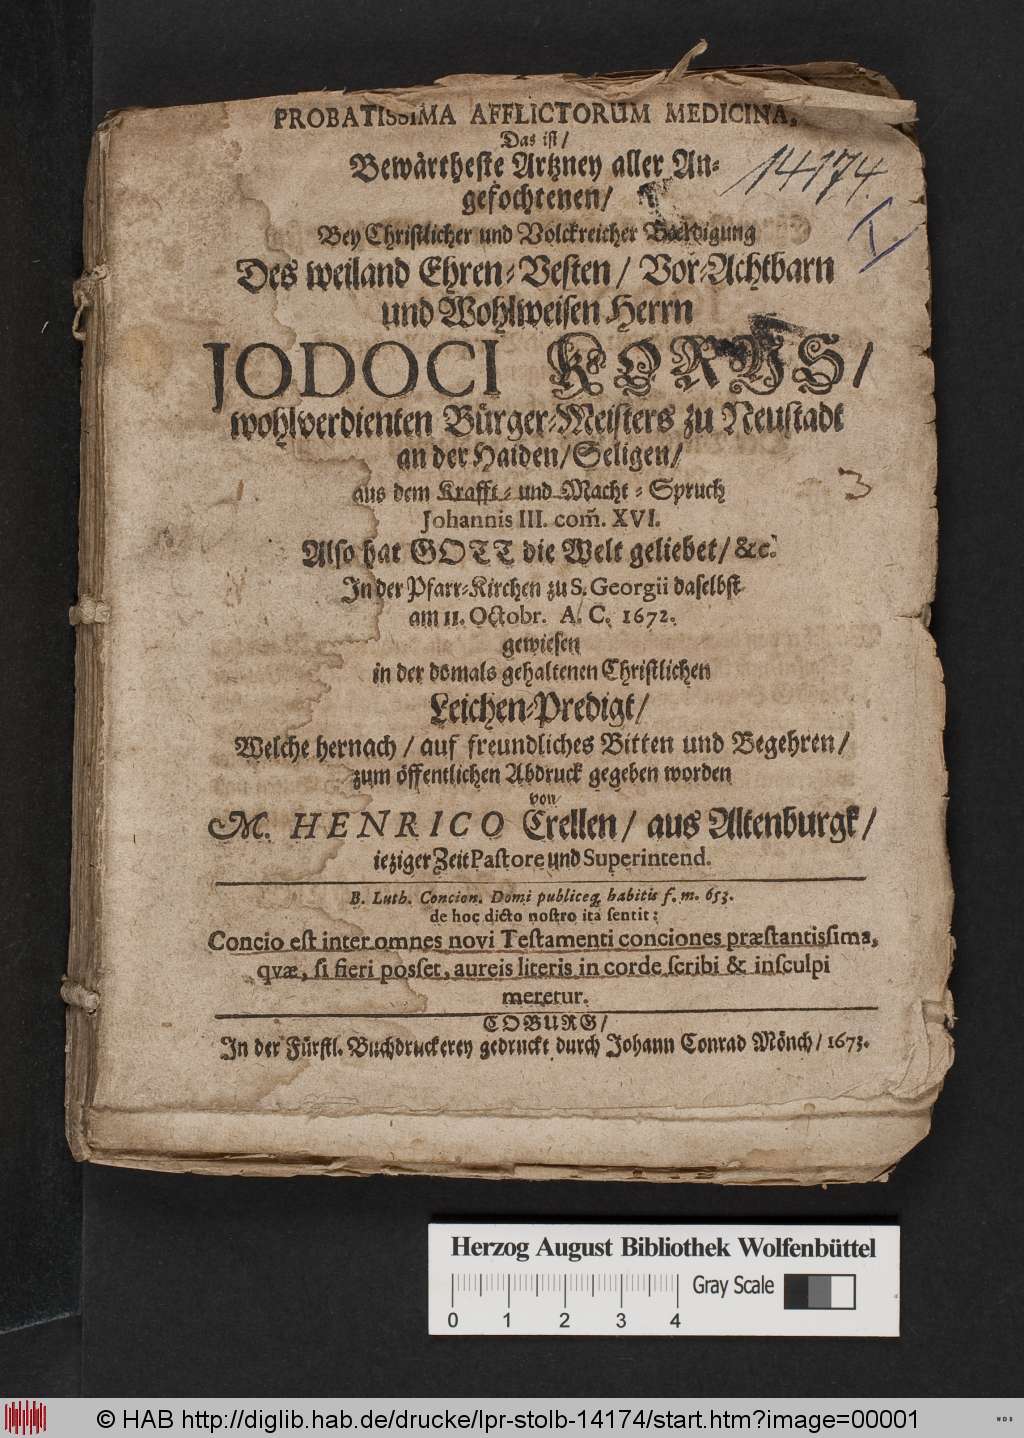 PROBATISSIMA AFFLICTORUM MEDICINA,
Das ist/
Bewärtheste Artzney aller An-
gefochtenen/
14174.
I
Bey Christlicher und Volckreicher Beerdigung
Des weiland Ehren-Vesten/ Vor-Achtbarn
und Wohlweisen Herrn
JODOCI KORNS/
wohlverdienten Bürger-Meisters zu Neustadt
an der Haiden/ Seligen/
aus dem Krafft- und Macht-Spruch
3
Johannis III. com̃. XVI.
Also hat GOTT die Welt geliebet/ &c.
In der Pfarr-Kirchen zu S. Georgii daselbst
am 11. Octobr. A. C. 1672.
gewiesen
in der domals gehaltenen Christlichen
Leichen-Predigt/
Welche hernach/ auf freundliches Bitten und Begehren/
zum öffentlichen Abdruck gegeben worden
von
M. HENRICO Crellen/ aus Altenburgk/
ieziger Zeit Pastore und Superintend.
B. Luth. Concion. Domi publiceq; habitis f. m. 653.
de hoc dicto nostro ita sentit:
Concio est inter omnes novi Testamenti conciones præstantissima,
qvæ, si fieri posset, aureis literis in corde scribi & insculpi
meretur.
COBURG/
In der Fürstl. Buchdruckerey gedruckt durch Johann Conrad Mönch/ 1673.
Herzog August Bibliothek Wolfenbüttel
Gray Scale
0 1 2 3 4
© HAB http://diglib.hab.de/drucke/lpr-stolb-14174/start.htm?image=00001